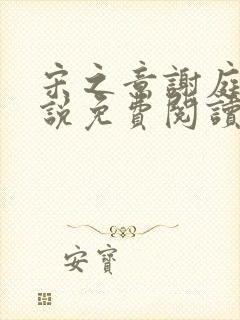 宋之章謝庭
說免費閱讀
安寶